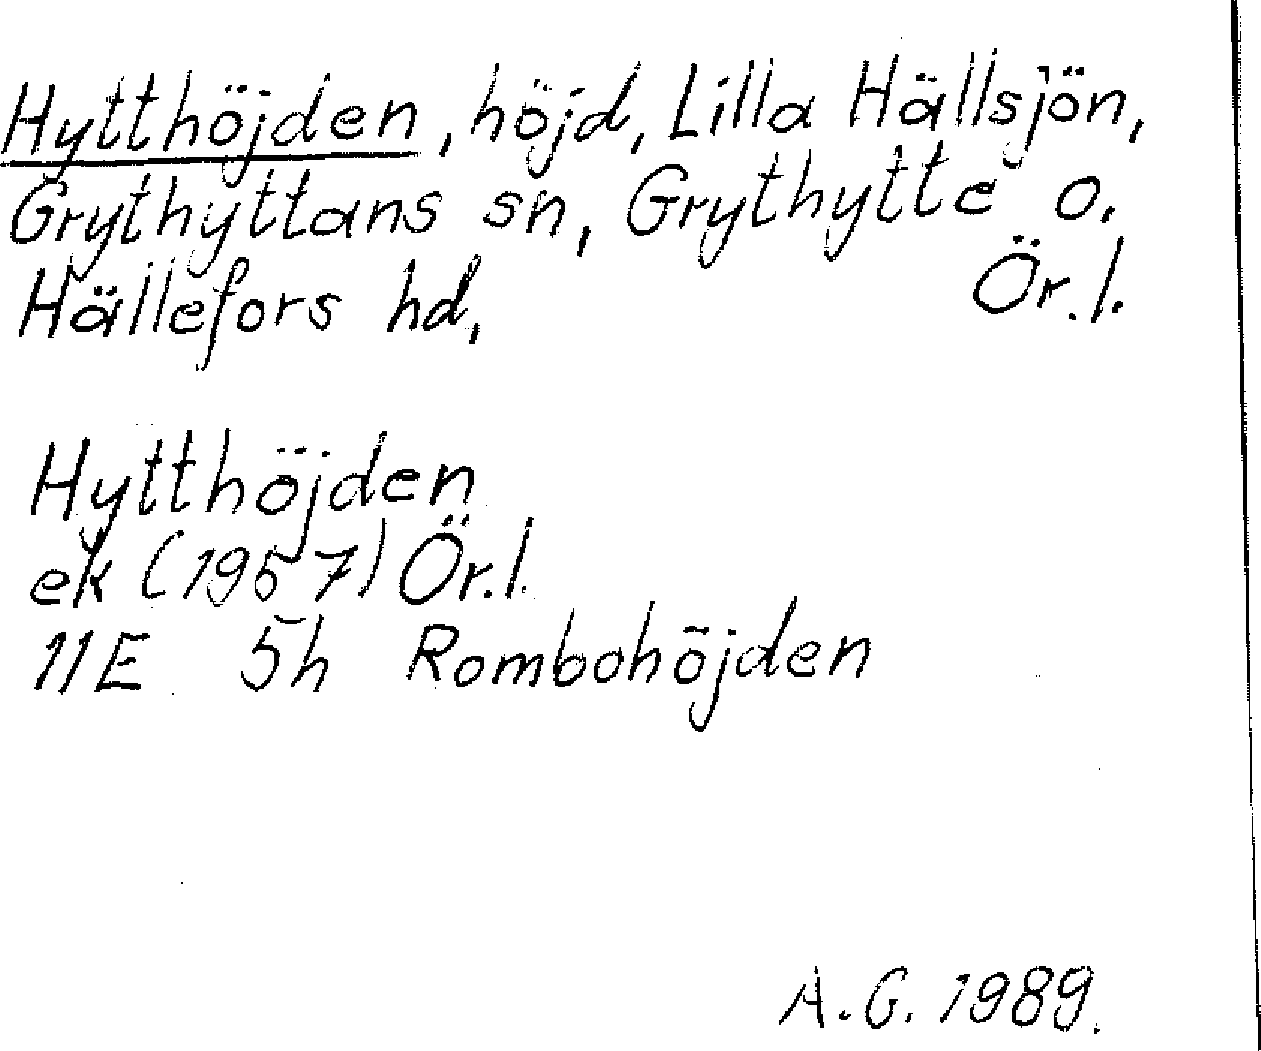 Hytthöjden, höjd, Lilla Hällsjön,
Grythyttans sn, Grythytte o.
Hällefors hd, Ör.l.
Hytthöjden
ek (1957) Ör.l.
11E 5h Rombohöjden
A.G. 1989.